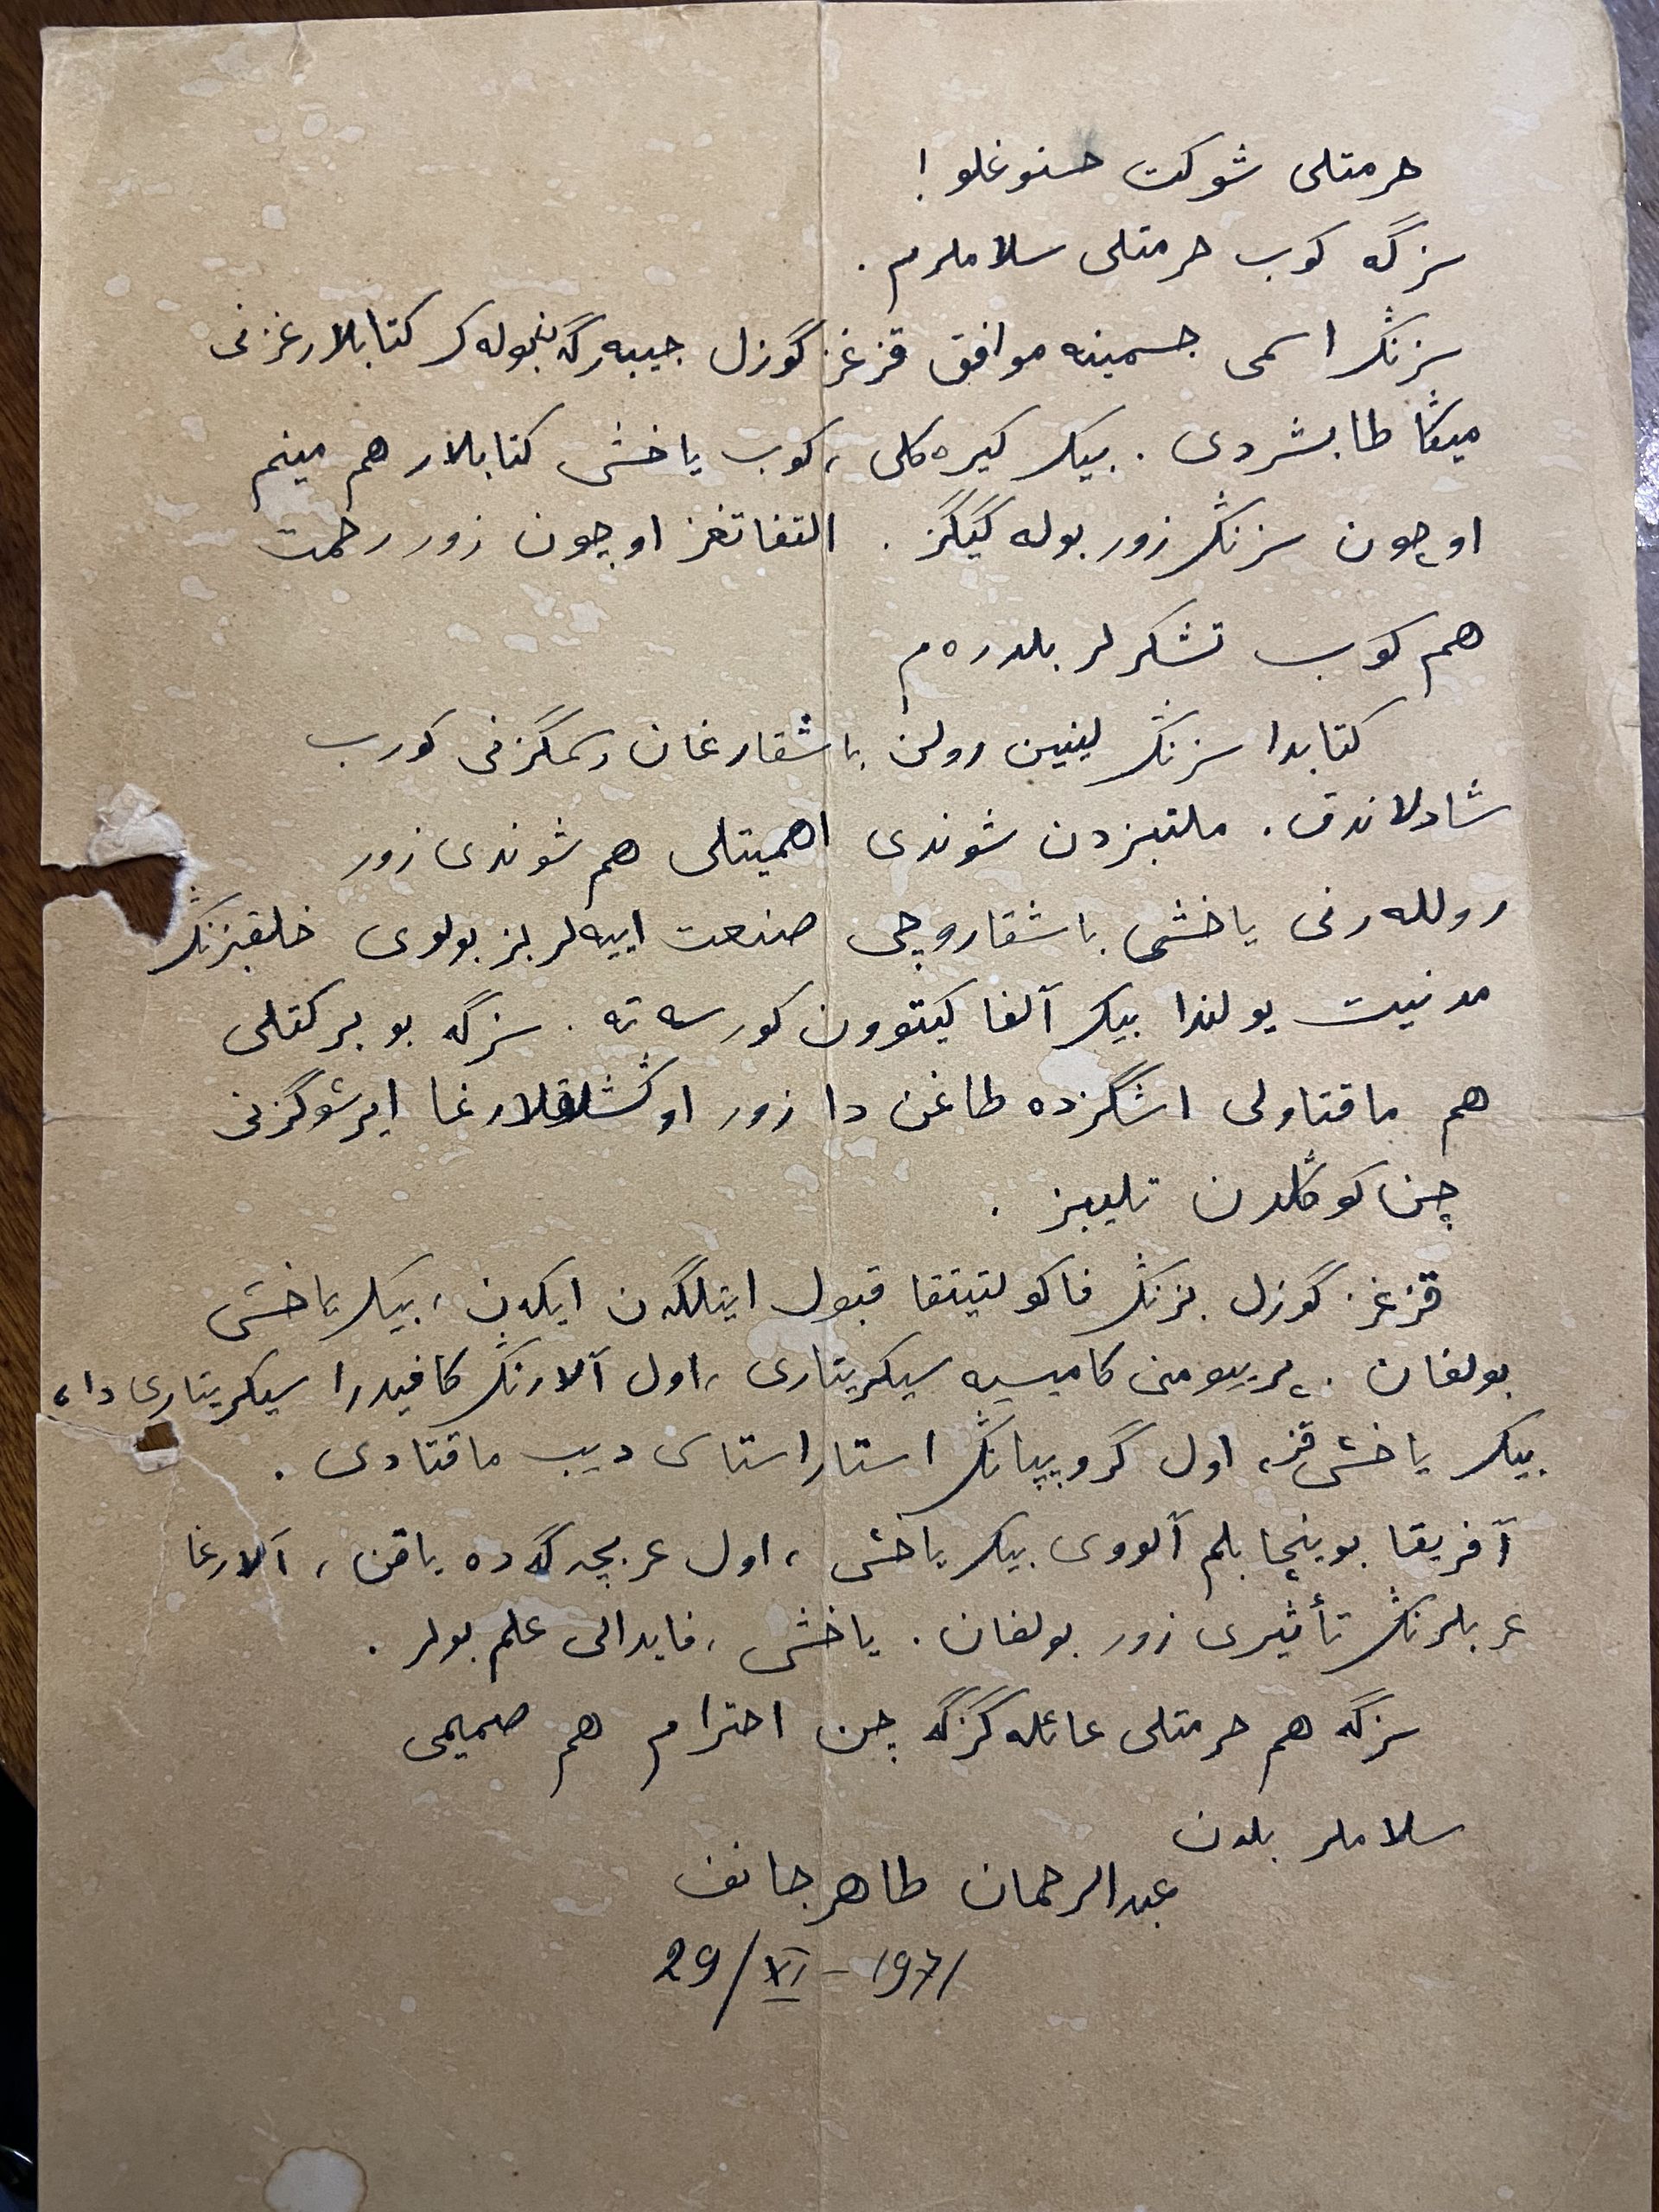 حرمتلی شوکت حسنوغلو!
سزگه کوب حرمتلی سلاملرم.
سزنڭ اسمی جسمینه موافق قزغز گوزل جیبه‌رگه‌ن بوله‌ک کتابلارغزنی
میڭا طابشردی. بیک کیره‌کلی، کوب یاخشی کتابلار هم مینم
اوچون سزنڭ زور بوله‌گیگز. التفاتغز اوچون زور رحمت
هم کوب تشکرلر بلدره‌م
کتابدا سزنڭ لینین رولن باشقارغان رسمگزنی کورب
شادلاندق. ملتبزدن شوندی اهمیتلی هم شوندی زور
روللەرنی یاخشی باشقاروچی صنعت اییه‌لربز بولوی خلقبزنڭ
مدنیت یولندا بیک آلغا کیتوون کورسه‌ته. سزگه بو برکتلی
هم ماقتاولی اشگزده طاغن دا زور اوڭشلقلارغا ایرشوگزنی
چن کوڭلدن تلیبز.
قزغز گوزل بزنڭ فاکولتیتقا قبول ایتلگه‌ن ایکه‌ن، بیک یاخشی
بولغان. پرییومنی کامیسیه سیکریتاری، اول آلارنڭ کافیدرا سیکریتاری دا،
بیک یاخشی قز، اول گروپپانڭ استاراستاسی دیب ماقتادی.
آفریقا بوینچا بلم آلووی بیک یاخشی، اول عربچه‌گه‌ده یاقن، آلارغا
عربلرنڭ تأثیری زور بولغان. یاخشی، فایدالی علم بولر.
سزگه هم حرمتلی عائله‌گزگه چن احترام هم صمیمی
سلاملر بلدن
عبدالرحمان طاهرجانف
29/XI-1971